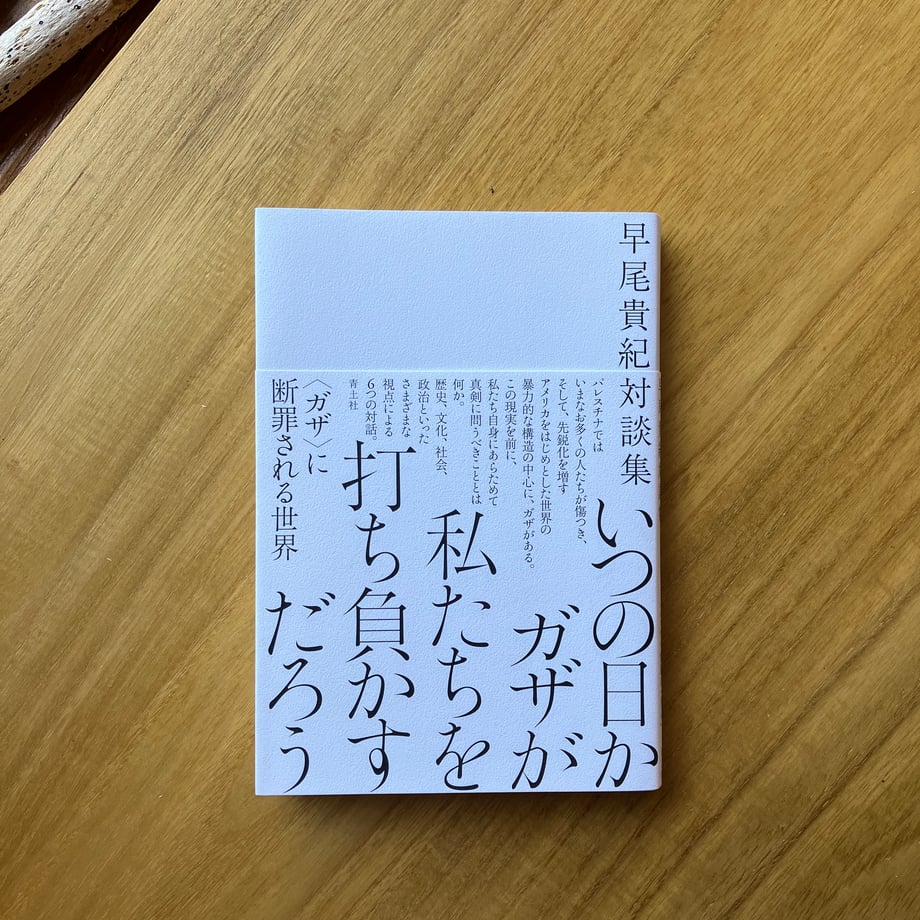 早尾貴紀対談集
いつの日か
ガザが
私たちを
打ち負かす
だろう
パレスチナでは
いまなお多くの人たちが傷つき、
そして、先鋭化を増す
アメリカをはじめとした世界の
暴力的な構造の中心に、ガザがある。
この現実を前に、
私たち自身にあらためて
真剣に問うべきこととは
何か。
歴史、文化、社会、
政治といった
さまざまな
視点による
6つの対話。
青土社
〈ガザ〉に
断罪される世界